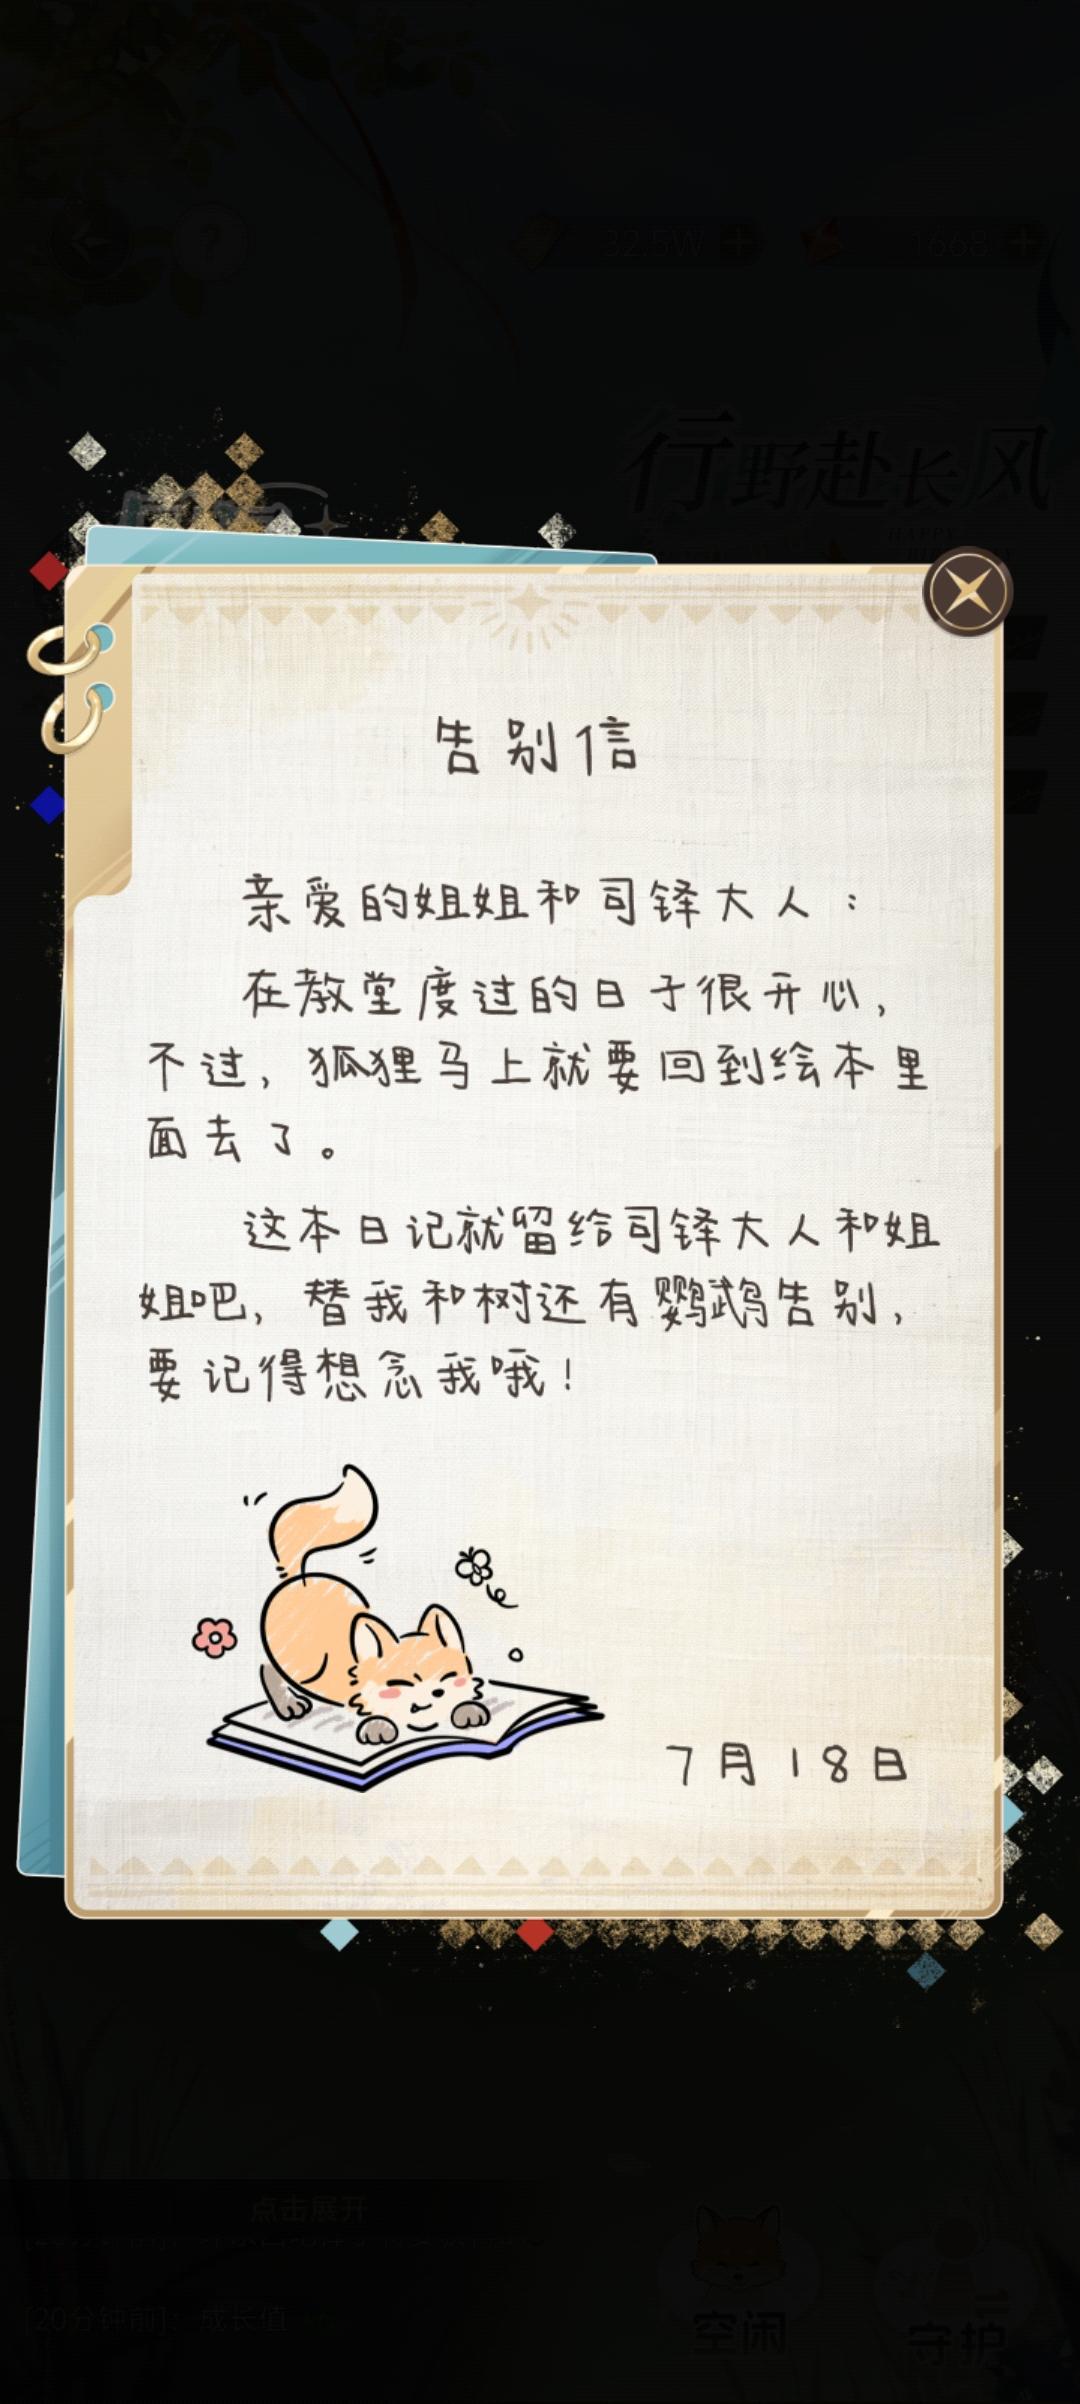 32.5W
1668
行野赴长风
HAPPY
告别信
亲爱的姐姐和司铎大人：
在教堂度过的日子很开心，
不过，狐狸马上就要回到绘本里
面去了。
这本日记就留给司铎大人和姐
姐吧，替我和树还有鹦鹉告别，
要记得想念我哦！
7月18日
点击展开
[20分钟前]：成长值
空闲
守护